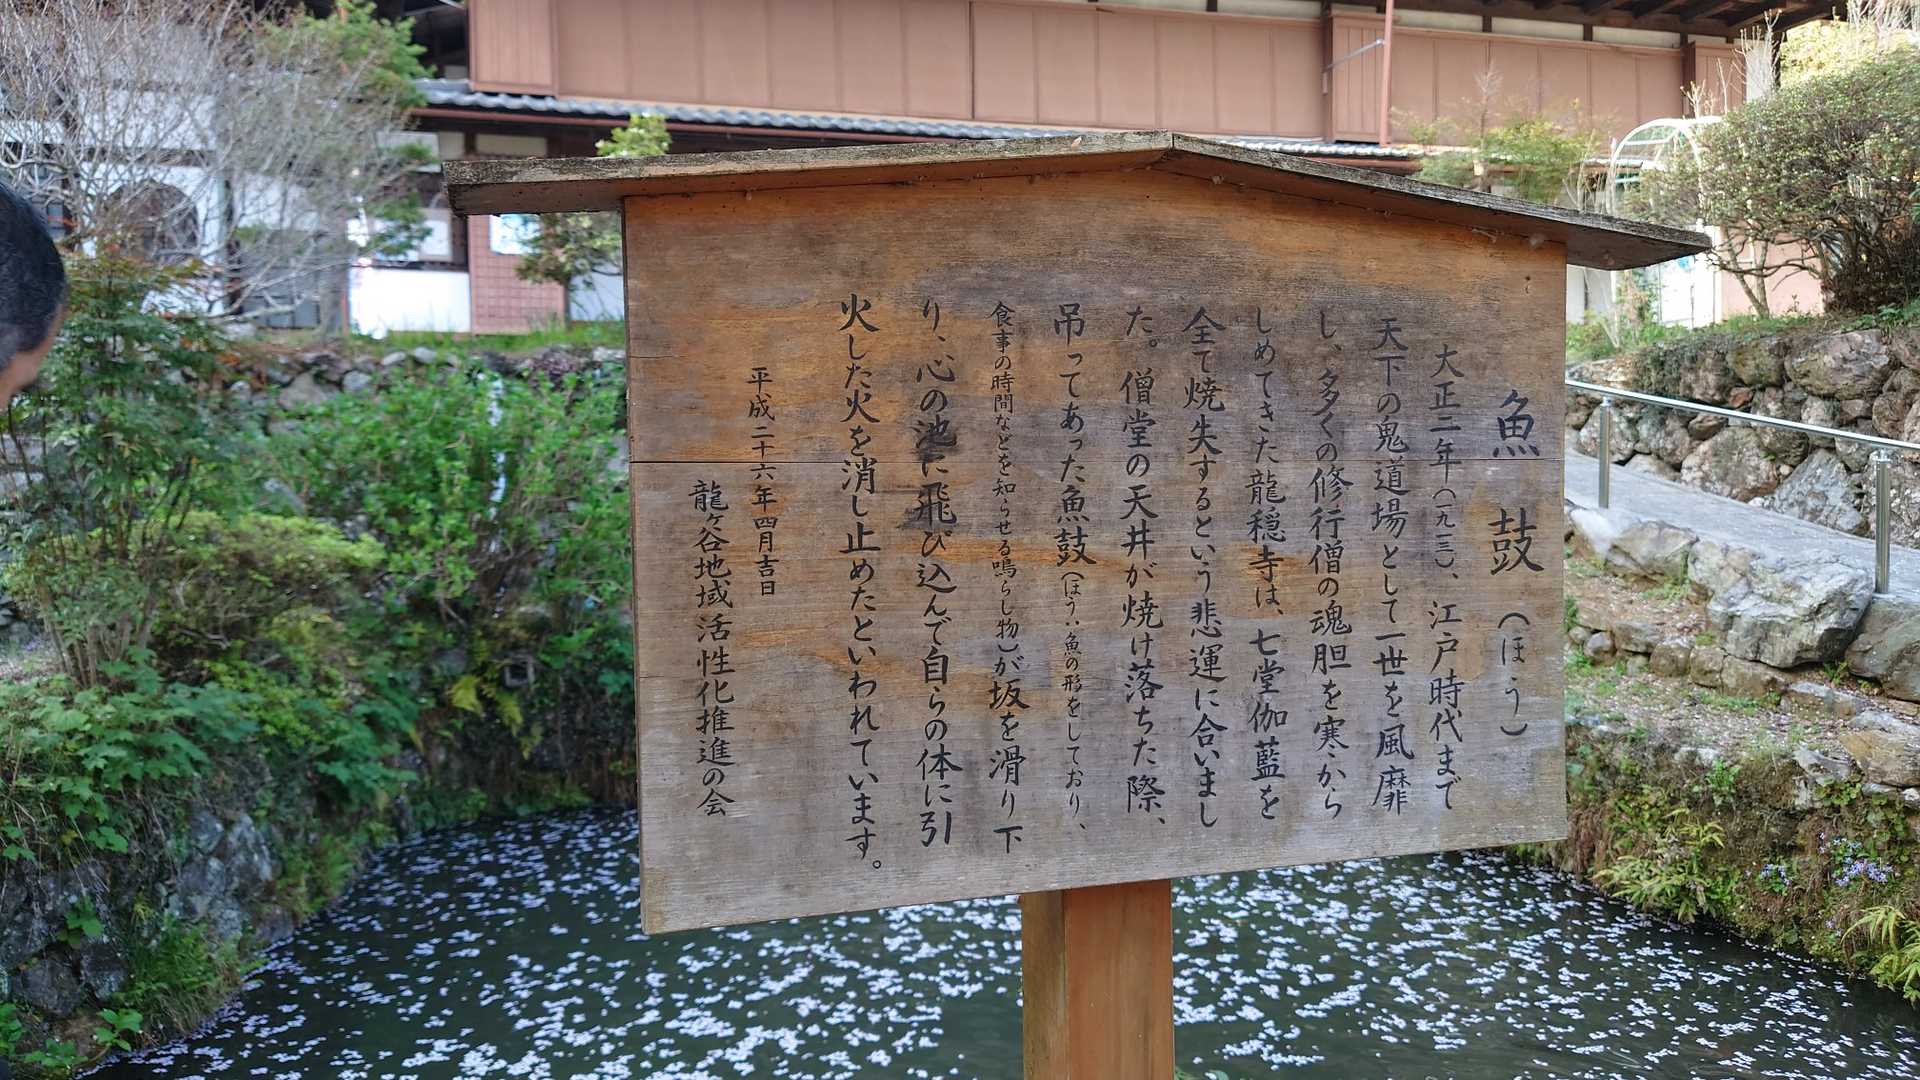 魚鼓(ほう)
大正二年(一九一三)、江戸時代まで
天下の鬼道場として一世を風靡
し、多くの修行僧の魂胆を寒から
しめてきた龍穏寺は、七堂伽藍を
全て焼失するという悲運に合いまし
た。僧堂の天井が焼け落ちた際、
吊ってあった魚鼓(ほう:魚の形をしており、
食事の時間などを知らせる鳴らし物)が坂を滑り下
り、心の池に飛び込んで自らの体に引
火した火を消し止めたといわれています。
平成二十六年四月吉日
龍ヶ谷地域活性化推進の会